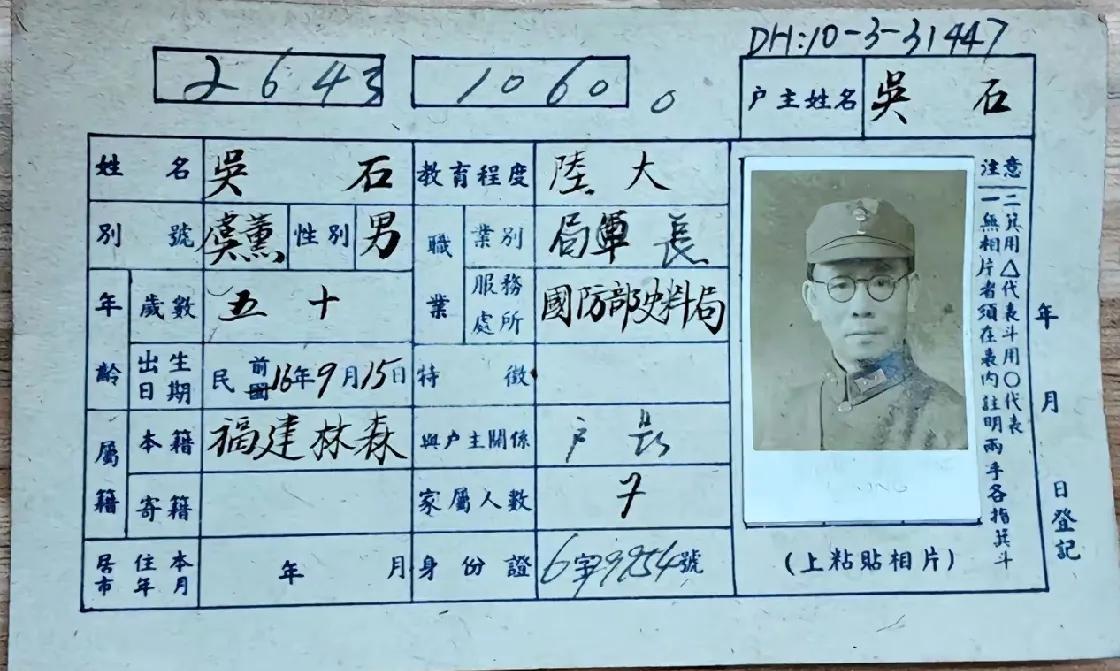 DH:10-3-31447
2643 1060 0
户主姓名 吳石
姓名 吳石 教育程度 陸大
別號 虞薰 性別 男 職業 業別 局軍長
年齡 歲數 五十 服務處所 國防部史料局
出生日期 民前國16年9月15日 特徵
屬籍 本籍 福建林森 與户主關係 户長
寄籍 家屬人數 7
居住本市年月 年 月 身份證 6字9954號
注意
一無相片者須在表内註明兩手各指箕斗
二箕用△代表斗用○代表
(上粘貼相片)
年 月 日登記